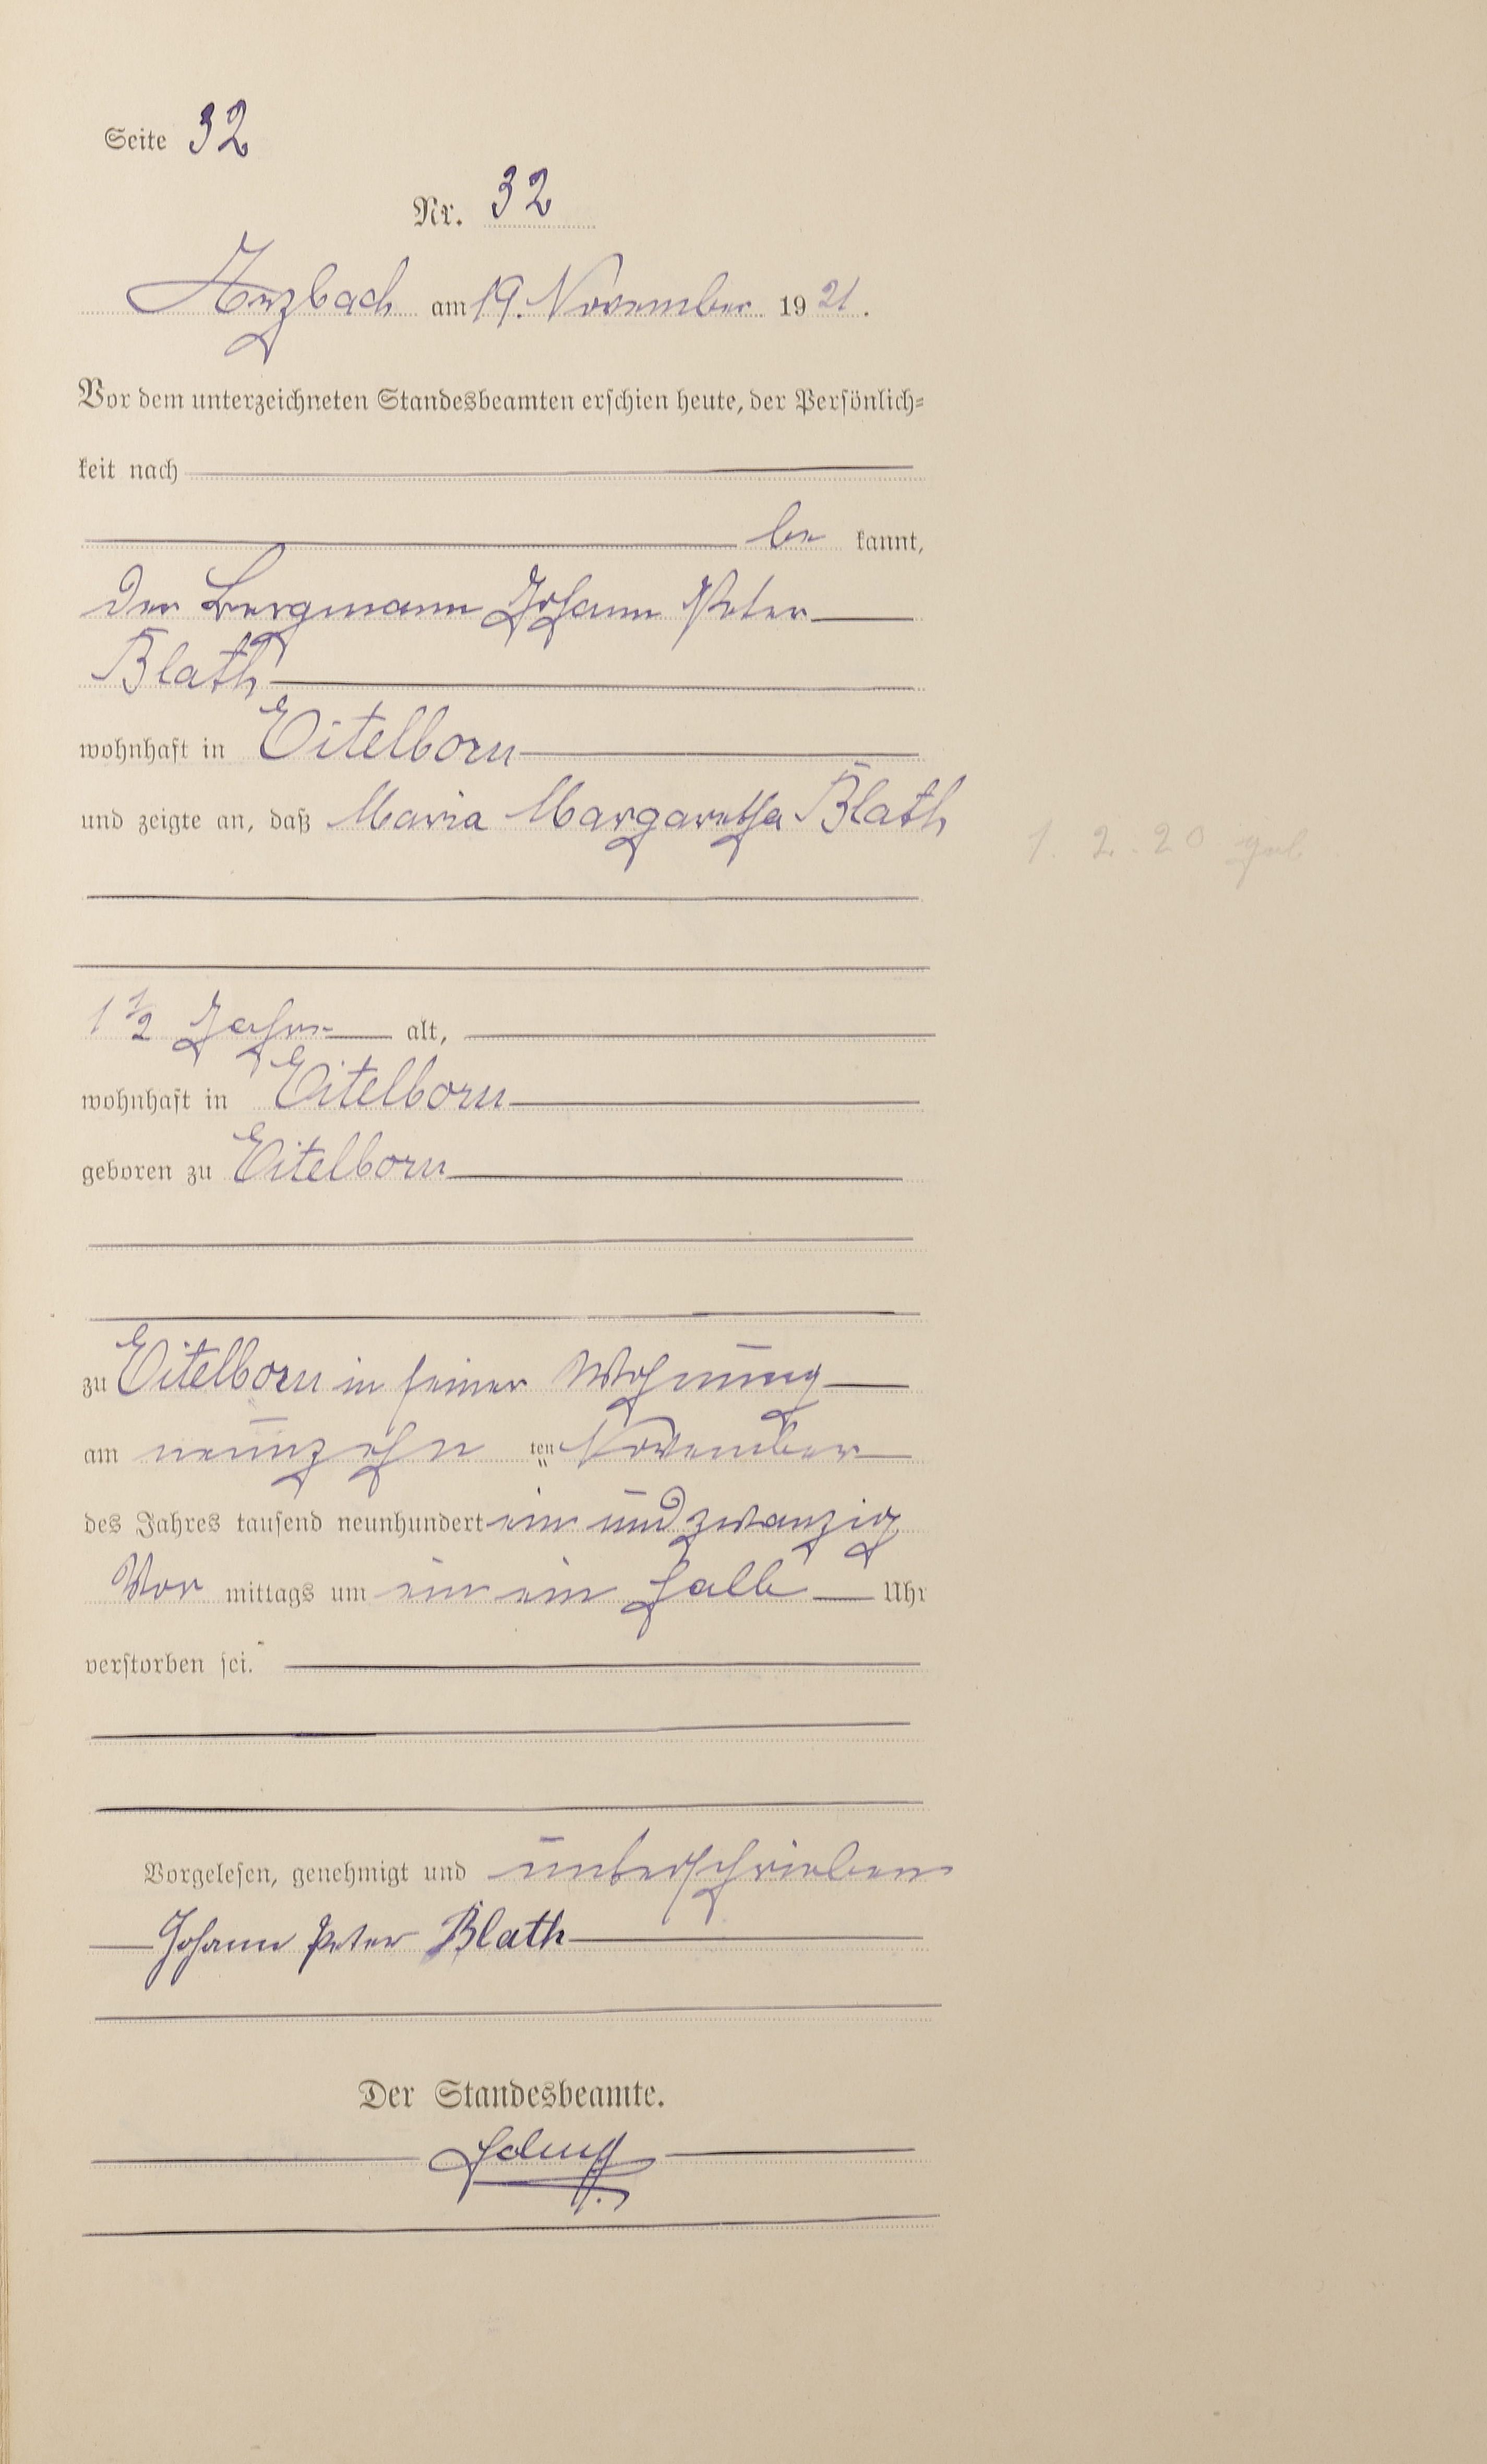 Seite 32
Nr. 32
Arzbach am 19. November 1921.
Vor dem unterzeichneten Standesbeamten erschien heute, der Persönlich=
keit nach
be kannt,
der Bergmann Johann Peter
Blath
wohnhaft in Eitelborn
und zeigte an, daß Maria Margaretha Blath
1. 2. 20 geb
1 1/2 Jahre alt,
wohnhaft in Eitelborn
geboren zu Eitelborn
zu Eitelborn in seiner Wohnung
am neunzehn ten November
des Jahres tausend neunhundert ein und zwanzig
Vor mittags um ein ein halb Uhr
verstorben sei.
Vorgelesen, genehmigt und unterschrieben
Johann Peter Blath
Der Standesbeamte.